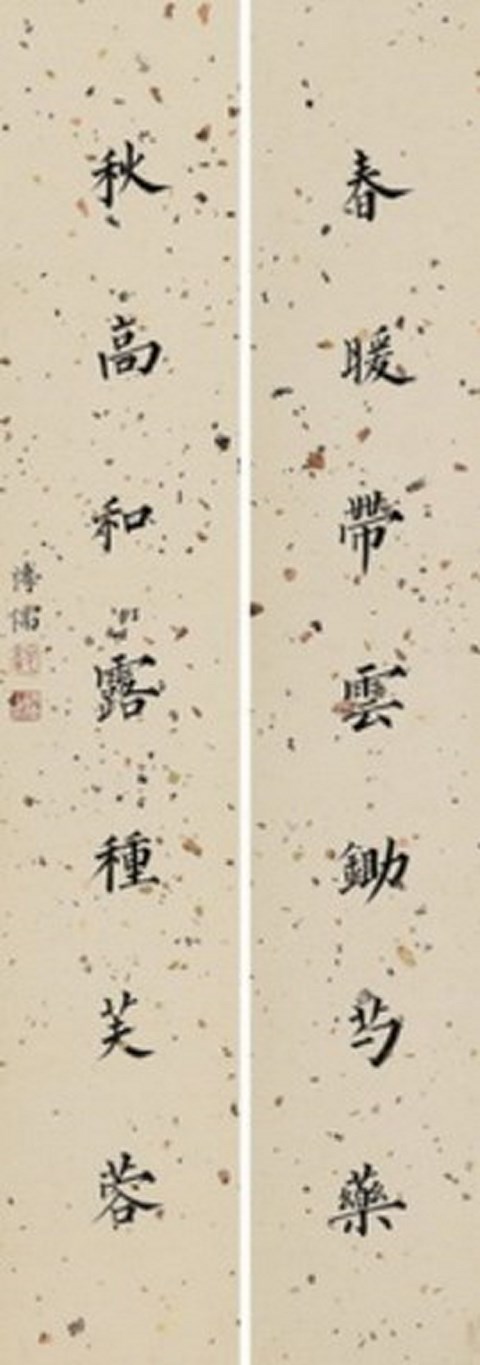 春暖帶雲鋤芍藥
秋高和露種芙蓉
溥儒